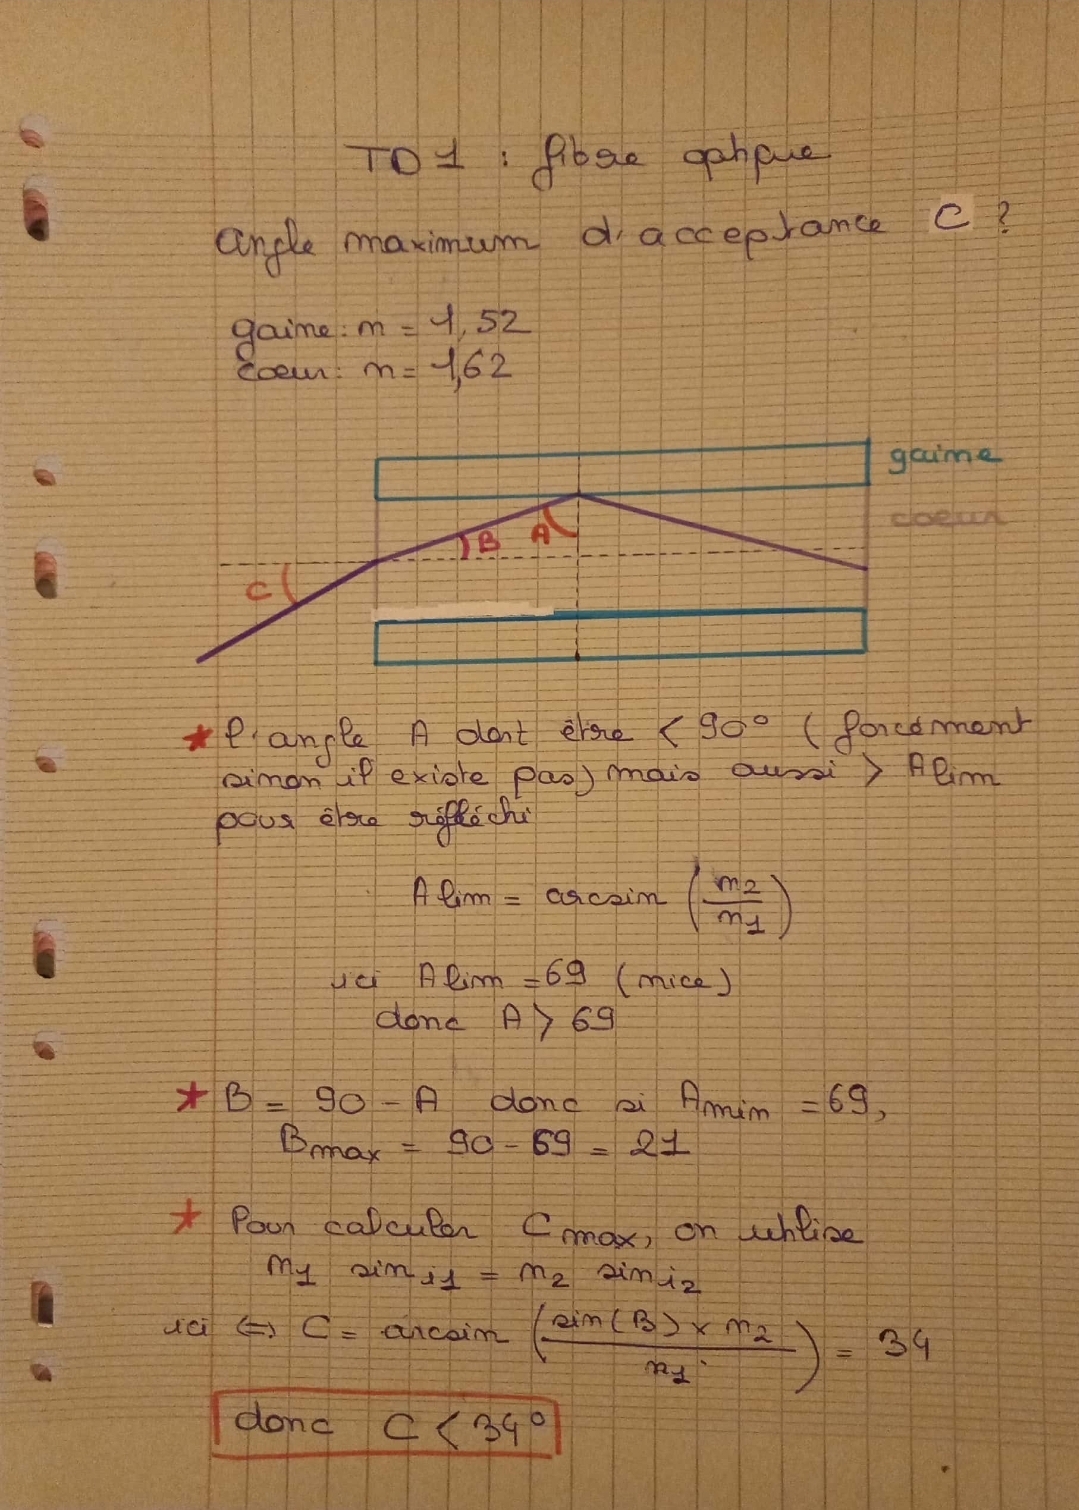 TD 1 : fibre optique
angle maximum d'acceptance C ?
gaine : n = 1,52
coeur : n = 1,62
gaine
coeur
B A
C
* l'angle A doit être < 90° (forcément
sinon il existe pas) mais aussi > A lim
pour être réfléchi
A lim = arcsin (n2/n1)
ici A lim = 69 (nice)
donc A > 69
* B = 90 - A donc si A min = 69,
B max = 90 - 69 = 21
* Pour calculer C max, on utilise
n1 sin i1 = n2 sin i2
ici <=> C = arcsin (sin(B) x n2 / n1) = 34
donc C < 34°